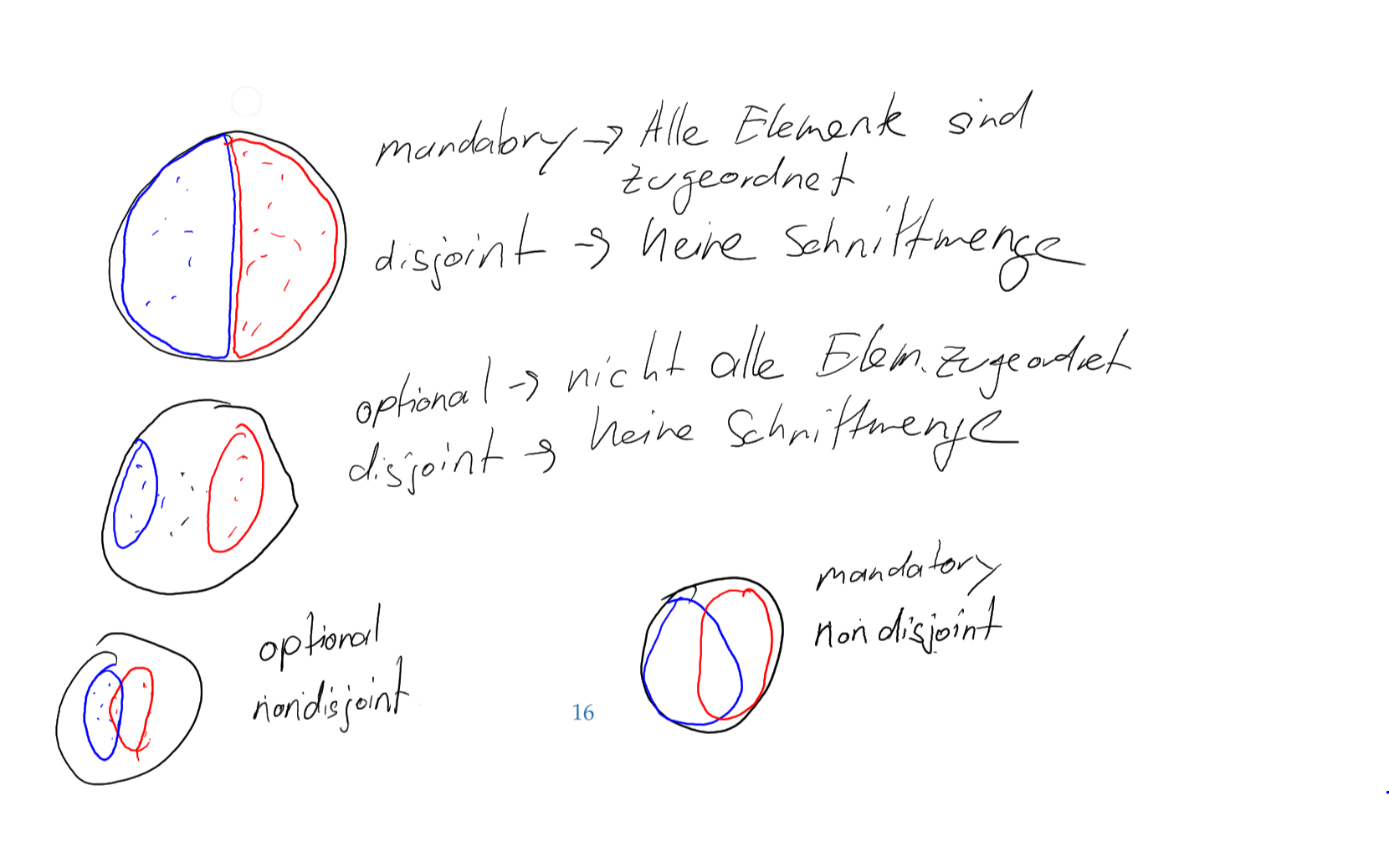 mandatory → Alle Elemente sind
zugeordnet
disjoint → keine Schnittmenge
optional → nicht alle Elem. zugeordnet
disjoint → keine Schnittmenge
optional
nondisjoint
mandatory
non disjoint
16